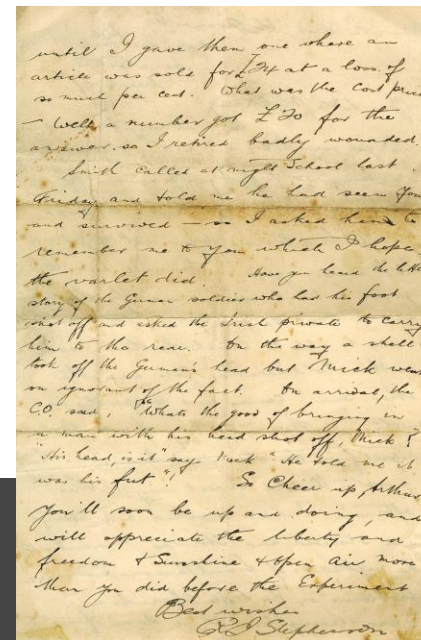 until I gave them one where an
article was sold for £24 at a loss of
so much per cent. What was the Cost price
— Well a number got £20 for the
answer so I retired badly wounded.
Smith called at night School last
Friday and told me he had seen you
and survived — so I asked him to
remember me to you which I hope
the varlet did. Have you heard the little
story of the German soldier who had his foot
shot off and asked the Irish private to carry
him to the rear. On the way a shell
took off the German's head but Mick went
on ignorant of the fact. On arrival, the
C.O. said, "Whats the good of bringing in
a man with his head shot off, Mick?
"His head, is it" says Mick "He told me it
was his fut"! So Cheer up, Arthur
You'll soon be up and doing, and
will appreciate the liberty and
freedom & Sunshine & Open air more
than you did before the Experiment
Best wishes
R J Stephenson